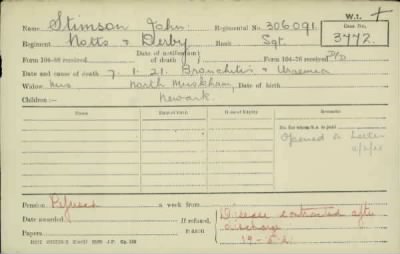 W.1.
Name Stimson John Regimental No. 306091 Case No. 3772.
Regiment Notts & Derby Rank Sgt.
Form 104-88 received Date of notification of death Form 104-76 received D/D
Date and cause of death 7.1.21. Bronchitis & Uraemia
Widow Mrs North Muskham, Date of birth
Children:— Newark.
Name Date of Birth Date of Expiry Remarks
To for whom it is paid
Opened a Letter
Pension Refused a week from Disease contracted after
Date awarded If refused, discharge
Papers reason